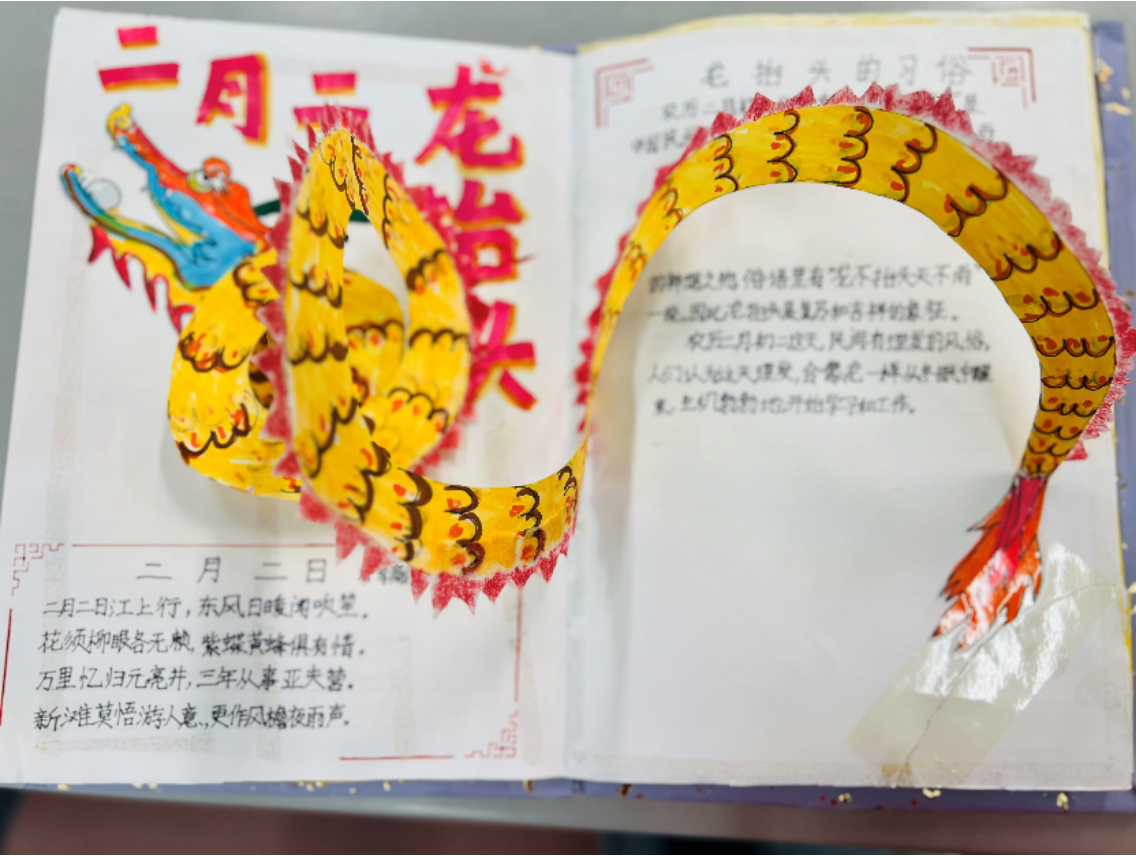 二月二 龙抬头
二月二日
李商
二月二日江上行，东风日暖闻吹笙。
花须柳眼各无赖，紫蝶黄蜂俱有情。
万里忆归元亮井，三年从事亚夫营。
新滩莫悟游人意，更作风檐夜雨声。
龙抬头的习俗
农历二月
中国民
俗话里有"龙不抬头天不雨"
一说，因此龙抬头是复苏和吉祥的象征。
农历二月初二这天，民间有理发的风俗，
人们认为这天理发，会像龙一样从冬眠中醒
来，生机勃勃地开始学习和工作。